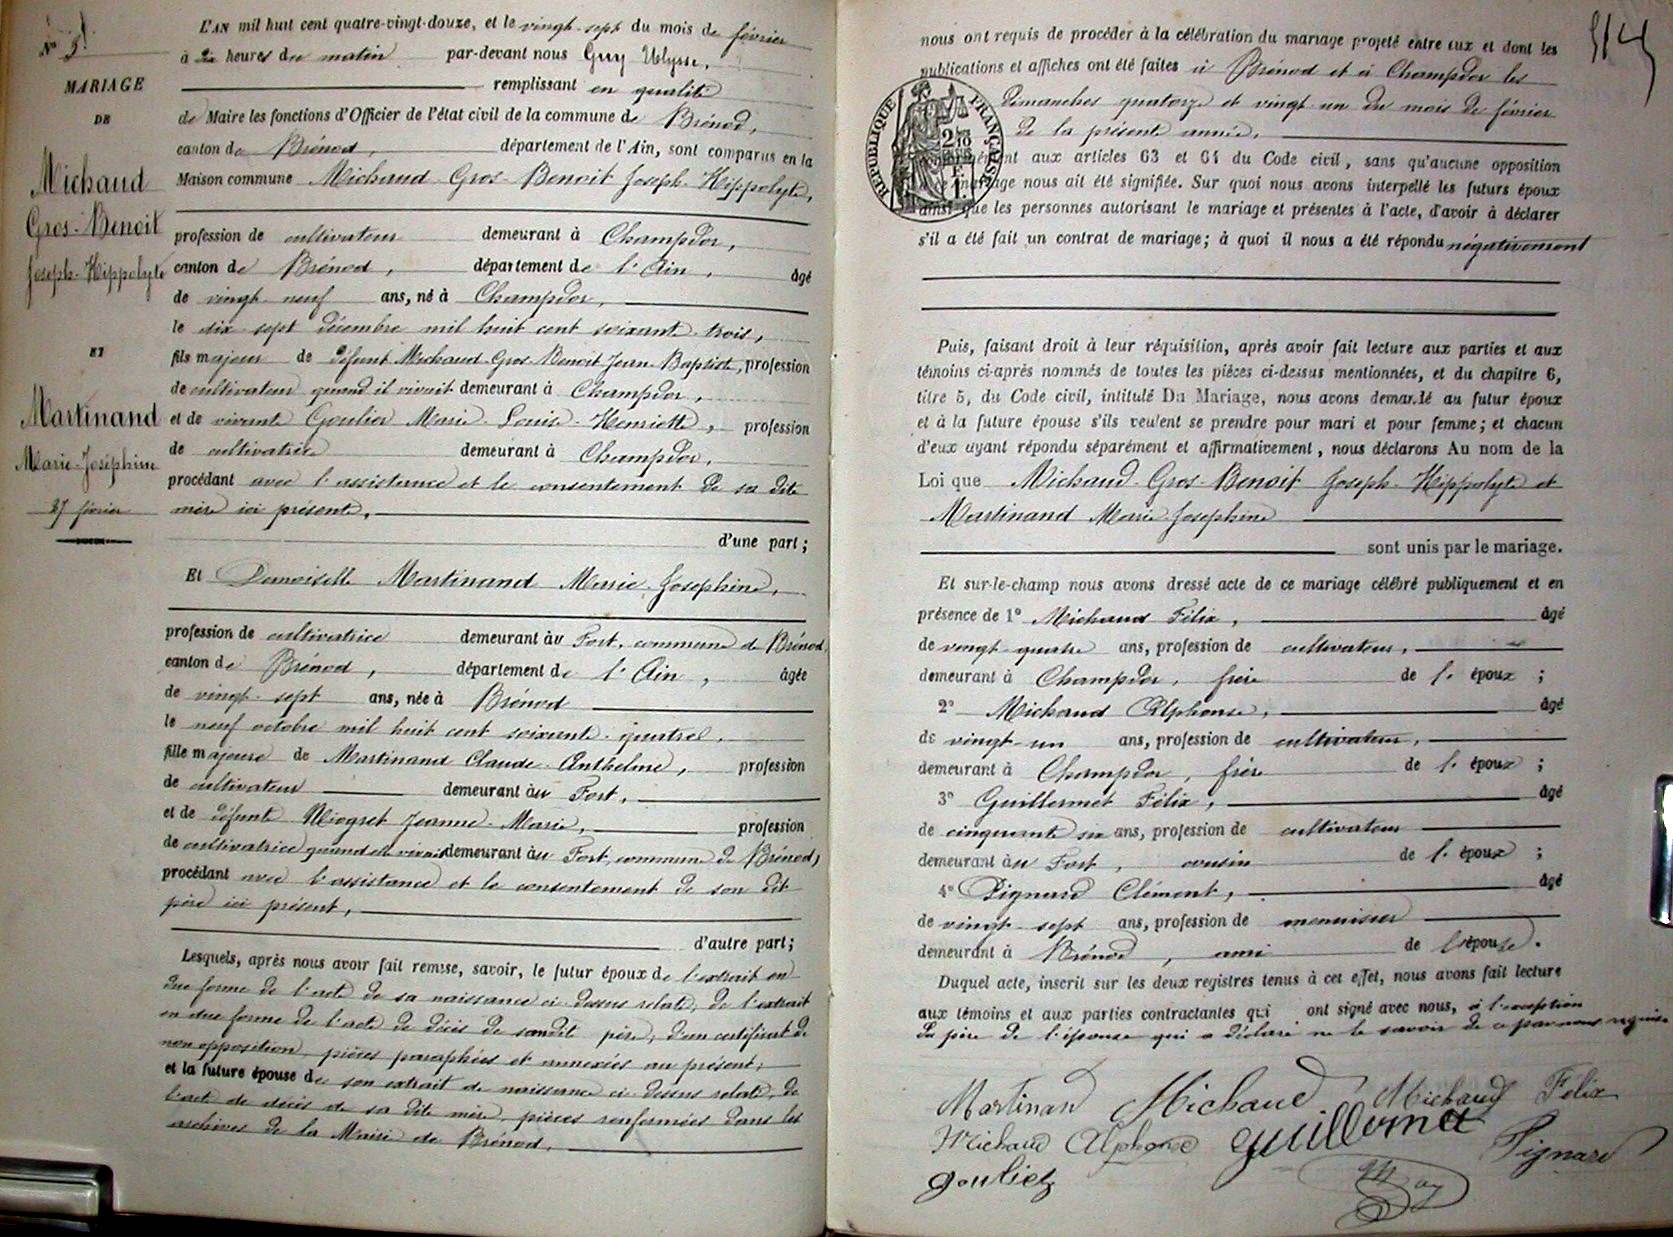 N° 5
MARIAGE
DE
Michaud
Gros-Benoit
Joseph-Hippolyte
ET
Martinand
Marie-Joséphine
27 février
L'AN mil huit cent quatre-vingt-douze, et le vingt-sept du mois de février
à dix heures du matin par-devant nous Guy Ulysse,
remplissant en qualité
de Maire les fonctions d'Officier de l'état civil de la commune de Brénod,
canton de Brénod, département de l'Ain, sont comparus en la
Maison commune Michaud-Gros-Benoit Joseph-Hippolyte,
profession de cultivateur demeurant à Champdor,
canton de Brénod, département de l'Ain, âgé
de vingt-neuf ans, né à Champdor,
le dix-sept décembre mil huit cent soixante-trois,
fils majeur de défunt Michaud-Gros-Benoit Jean-Baptiste, profession
de cultivateur quand il vivait demeurant à Champdor,
et de vivante Goulier Marie-Louise-Henriette, profession
de cultivatrice demeurant à Champdor,
procédant avec l'assistance et le consentement de sa dite
mère ici présente,
d'une part;
Et Demoiselle Martinand Marie-Joséphine,
profession de cultivatrice demeurant àu Fort, commune de Brénod,
canton de Brénod, département de l'Ain, âgée
de vingt-sept ans, née à Brénod
le neuf octobre mil huit cent soixante-quatre,
fille majeure de Martinand Claude-Anthelme, profession
de cultivateur demeurant àu Fort,
et de défunte Niogret Jeanne-Marie, profession
de cultivatrice quand elle vivait demeurant àu Fort, commune de Brénod,
procédant avec l'assistance et le consentement de son dit
père ici présent,
d'autre part;
Lesquels, après nous avoir fait remise, savoir, le futur époux de l'extrait en
due forme de l'acte de sa naissance ci-dessus relaté, de l'extrait
en due forme de l'acte de décès de son dit père, d'un certificat de
non opposition, pièces paraphées et annexées au présent;
et la future épouse de son extrait de naissance ci-dessus relaté, de
l'acte de décès de sa dite mère, pièces renfermées dans les
archives de la Mairie de Brénod,
nous ont requis de procéder à la célébration du mariage projeté entre eux et dont les
publications et affiches ont été faites à Brénod et à Champdor les
dimanches quatorze et vingt-un du mois de février
de la présente année,
RÉPUBLIQUE FRANÇAISE
aux articles 63 et 64 du Code civil, sans qu'aucune opposition
mariage nous ait été signifiée. Sur quoi nous avons interpellé les futurs époux
ainsi que les personnes autorisant le mariage et présentes à l'acte, d'avoir à déclarer
s'il a été fait un contrat de mariage; à quoi il nous a été répondu négativement
Puis, faisant droit à leur réquisition, après avoir fait lecture aux parties et aux
témoins ci-après nommés de toutes les pièces ci-dessus mentionnées, et du chapitre 6,
titre 5, du Code civil, intitulé Du Mariage, nous avons demandé au futur époux
et à la future épouse s'ils veulent se prendre pour mari et pour femme; et chacun
d'eux ayant répondu séparément et affirmativement, nous déclarons Au nom de la
Loi que Michaud-Gros-Benoit Joseph-Hippolyte et
Martinand Marie-Joséphine
sont unis par le mariage.
Et sur-le-champ nous avons dressé acte de ce mariage célébré publiquement et en
présence de 1° Michaud Félix, âgé
de vingt-quatre ans, profession de cultivateur,
demeurant à Champdor, frère de l'époux;
2° Michaud Alphonse, âgé
de vingt-un ans, profession de cultivateur,
demeurant à Champdor, frère de l'époux;
3° Guillermet Félix, âgé
de cinquante six ans, profession de cultivateur
demeurant àu Fort, cousin de l'époux;
4° Pignard Clément, âgé
de vingt-sept ans, profession de menuisier
demeurant à Brénod, ami de l'épouse.
Duquel acte, inscrit sur les deux registres tenus à cet effet, nous avons fait lecture
aux témoins et aux parties contractantes qui ont signé avec nous, à l'exception
du père de l'épouse qui a déclaré ne le savoir de ce par nous requis
Martinand Michaud Michaud Félix
Michaud Alphonse guillermet Pignard
Guy